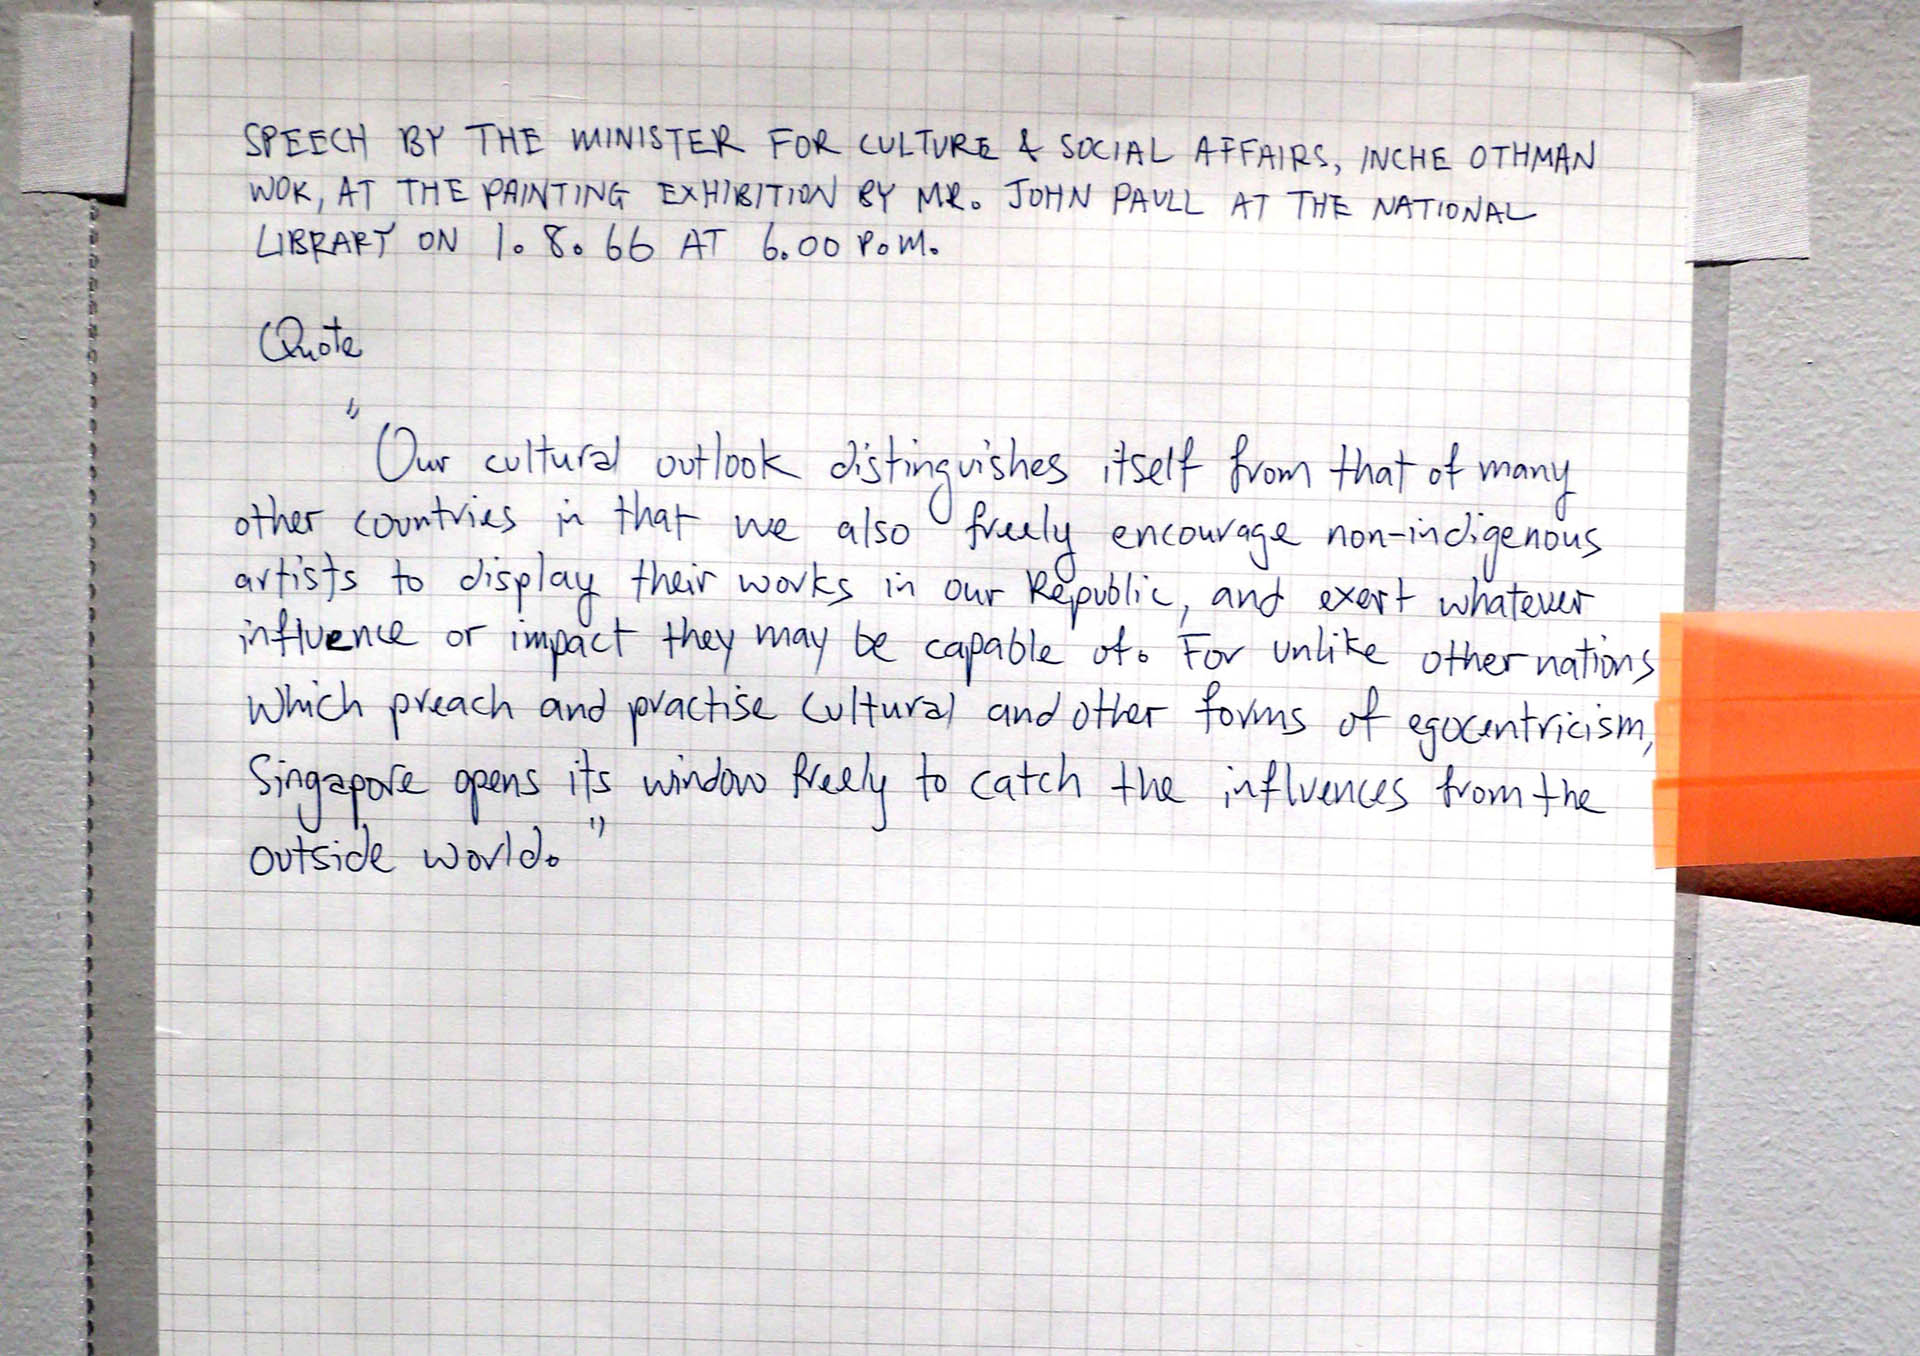 SPEECH BY THE MINISTER FOR CULTURE & SOCIAL AFFAIRS, INCHE OTHMAN
WOK, AT THE PAINTING EXHIBITION BY MR. JOHN PAULL AT THE NATIONAL
LIBRARY ON 1. 8. 66 AT 6.00 P.M.
Quote
"Our cultural outlook distinguishes itself from that of many
other countries in that we also freely encourage non-indigenous
artists to display their works in our Republic, and exert whatever
influence or impact they may be capable of. For unlike other nations
which preach and practise cultural and other forms of egocentricism,
Singapore opens its window freely to catch the influences from the
outside world."